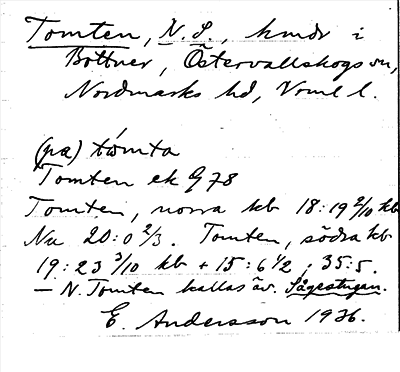 Tomten, N. S., hmdr i
Bottner, Östervallskogs sn,
Nordmarks hd, Vrml l.
(pa) tômta
Tomten ek G 78
Tomten, norra kb 18:19 2/10 kb
Nu 20:0 2/3. Tomten, södra kb
19:23 3/10 kb + 15:6 1/2, 35:5.
— N. Tomten kallas äv. Sågestugan.
E. Andersson 1936.